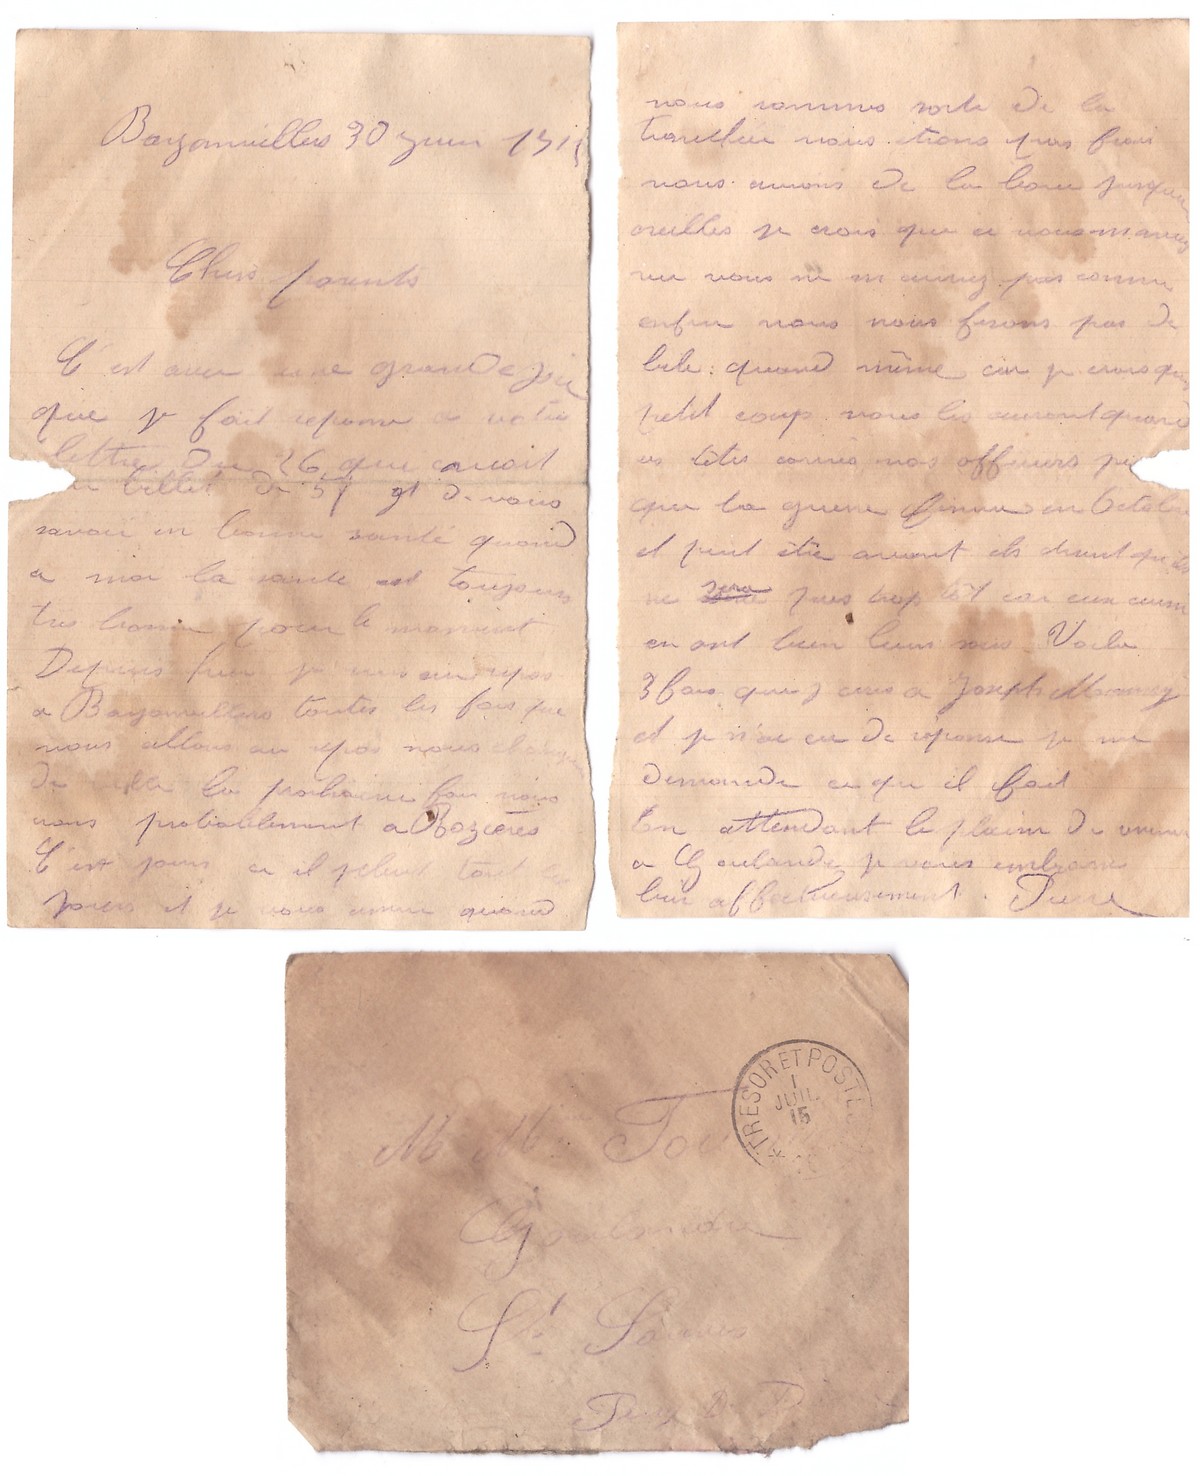 Bayonvillers 30 juin 191
Chers parents
C'est avec une grande joie
que je fait reponse a votre
lettre Du 26 qui
billet de 5f et de vous
savoir en bonne santé quand
a moi la sante est toujours
tres bonne pour le moment
Depuis hier je suis au repos
a Bayonvillers toutes les fois que
nous allons au repos nous
De la prochaine fois nous
probablement a Rozières
C'est jours ci il pleut tout les
jours et je vous quand
nous sommes sorti de la
tranchée nous étions pas frais
nous avions de la boue jusque
oreilles je crois que ci vous
vu vous ne m'auriez pas connu
enfin nous nous fesons pas de
bile quand même car je crois que
petit coup nous les auront quand
nos officiers
que la guerre en Octobre
et peut être avant ils disent que
ne sera pas trop tôt car eux aussi
en ont bien Voila
3 fois que j a Joseph
et je n'ai eu de réponse je me
demande ce qu il fait
En attendant le plaisir de
a Goulandre je vous embrasse
bien affectueusement. Pierre
TRESOR ET POSTES
1
JUIL
15
M Mme
Goulandre
St Sauves
Puy D D